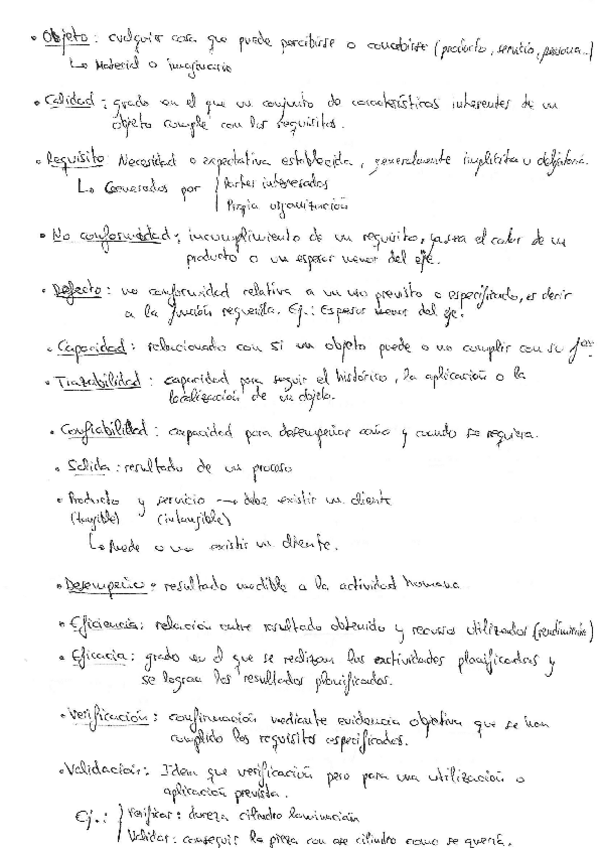 • Objeto: cualquier cosa que puede percibirse o concebirse (producto, servicio, persona...)
↳ Material o imaginario
• Calidad: grado en el que un conjunto de características inherentes de un
objeto cumple con los requisitos.
• Requisito: Necesidad o expectativa establecida, generalmente implícita u obligatoria.
↳ Generados por { Partes interesadas
Propia organización
• No conformidad: incumplimiento de un requisito, ya sea el color de un
producto o un espesor menor del eje.
• Defecto: no conformidad relativa a un uso previsto o especificado, es decir
a la función requerida. Ej.: Espesor menor del eje.
• Capacidad: relacionado con si un objeto puede o no cumplir con su
• Trazabilidad: capacidad para seguir el histórico, la aplicación o la
localización de un objeto.
• Confiabilidad: capacidad para desempeñar como y cuando se requiera.
• Salida: resultado de un proceso
• Producto y servicio → debe existir un cliente
(tangible) (intangible)
↳ Puede o no existir un cliente.
• Desempeño: resultado medible a la actividad humana
• Eficiencia: relación entre resultado obtenido y recursos utilizados (rendimiento)
• Eficacia: grado en el que se realizan las actividades planificadas y
se logran los resultados planificados.
• Verificación: confirmación mediante evidencia objetiva que se han
cumplido los requisitos especificados.
• Validación: Idem que verificación pero para una utilización o
aplicación prevista.
Ej.: { Verificar: dureza cilindro laminación
Validar: conseguir la pieza con ese cilindro como se quería.